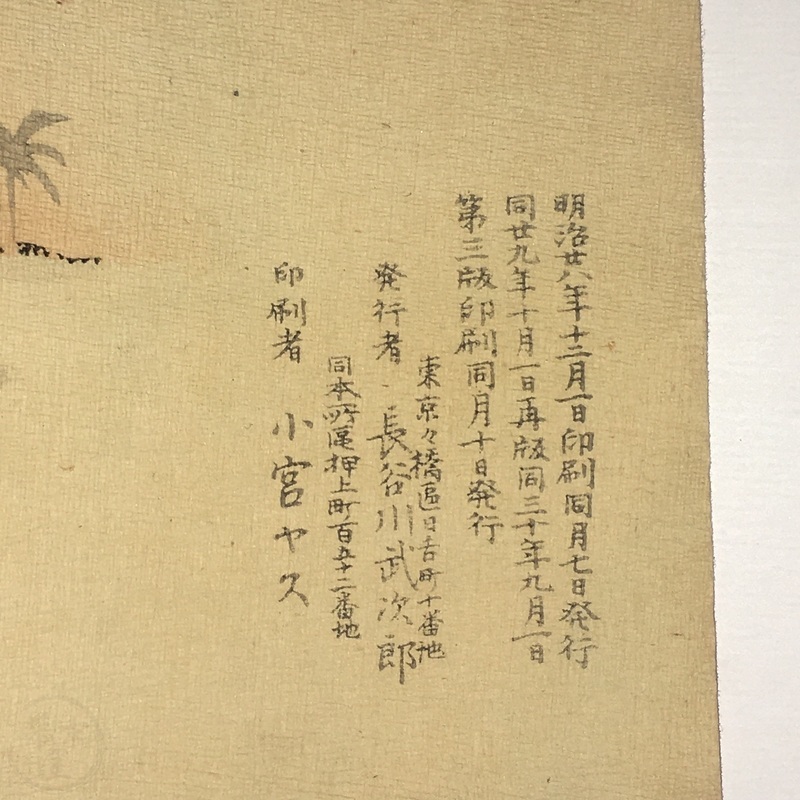 明治廿八年十二月一日印刷同月七日発行
同廿九年十月一日再版同三十年九月一日
第三版印刷同月十日発行
東京々橋區日吉町十番地
発行者 長谷川武次郎
同本所區押上町百五十二番地
印刷者 小宮ヤス